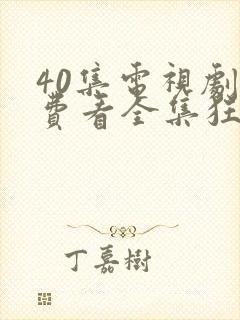 40集電視劇
費看全集狂
丁嘉樹